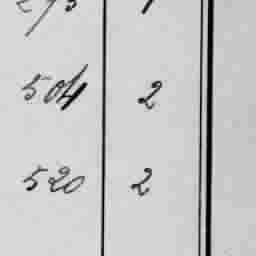 504 2
520 2